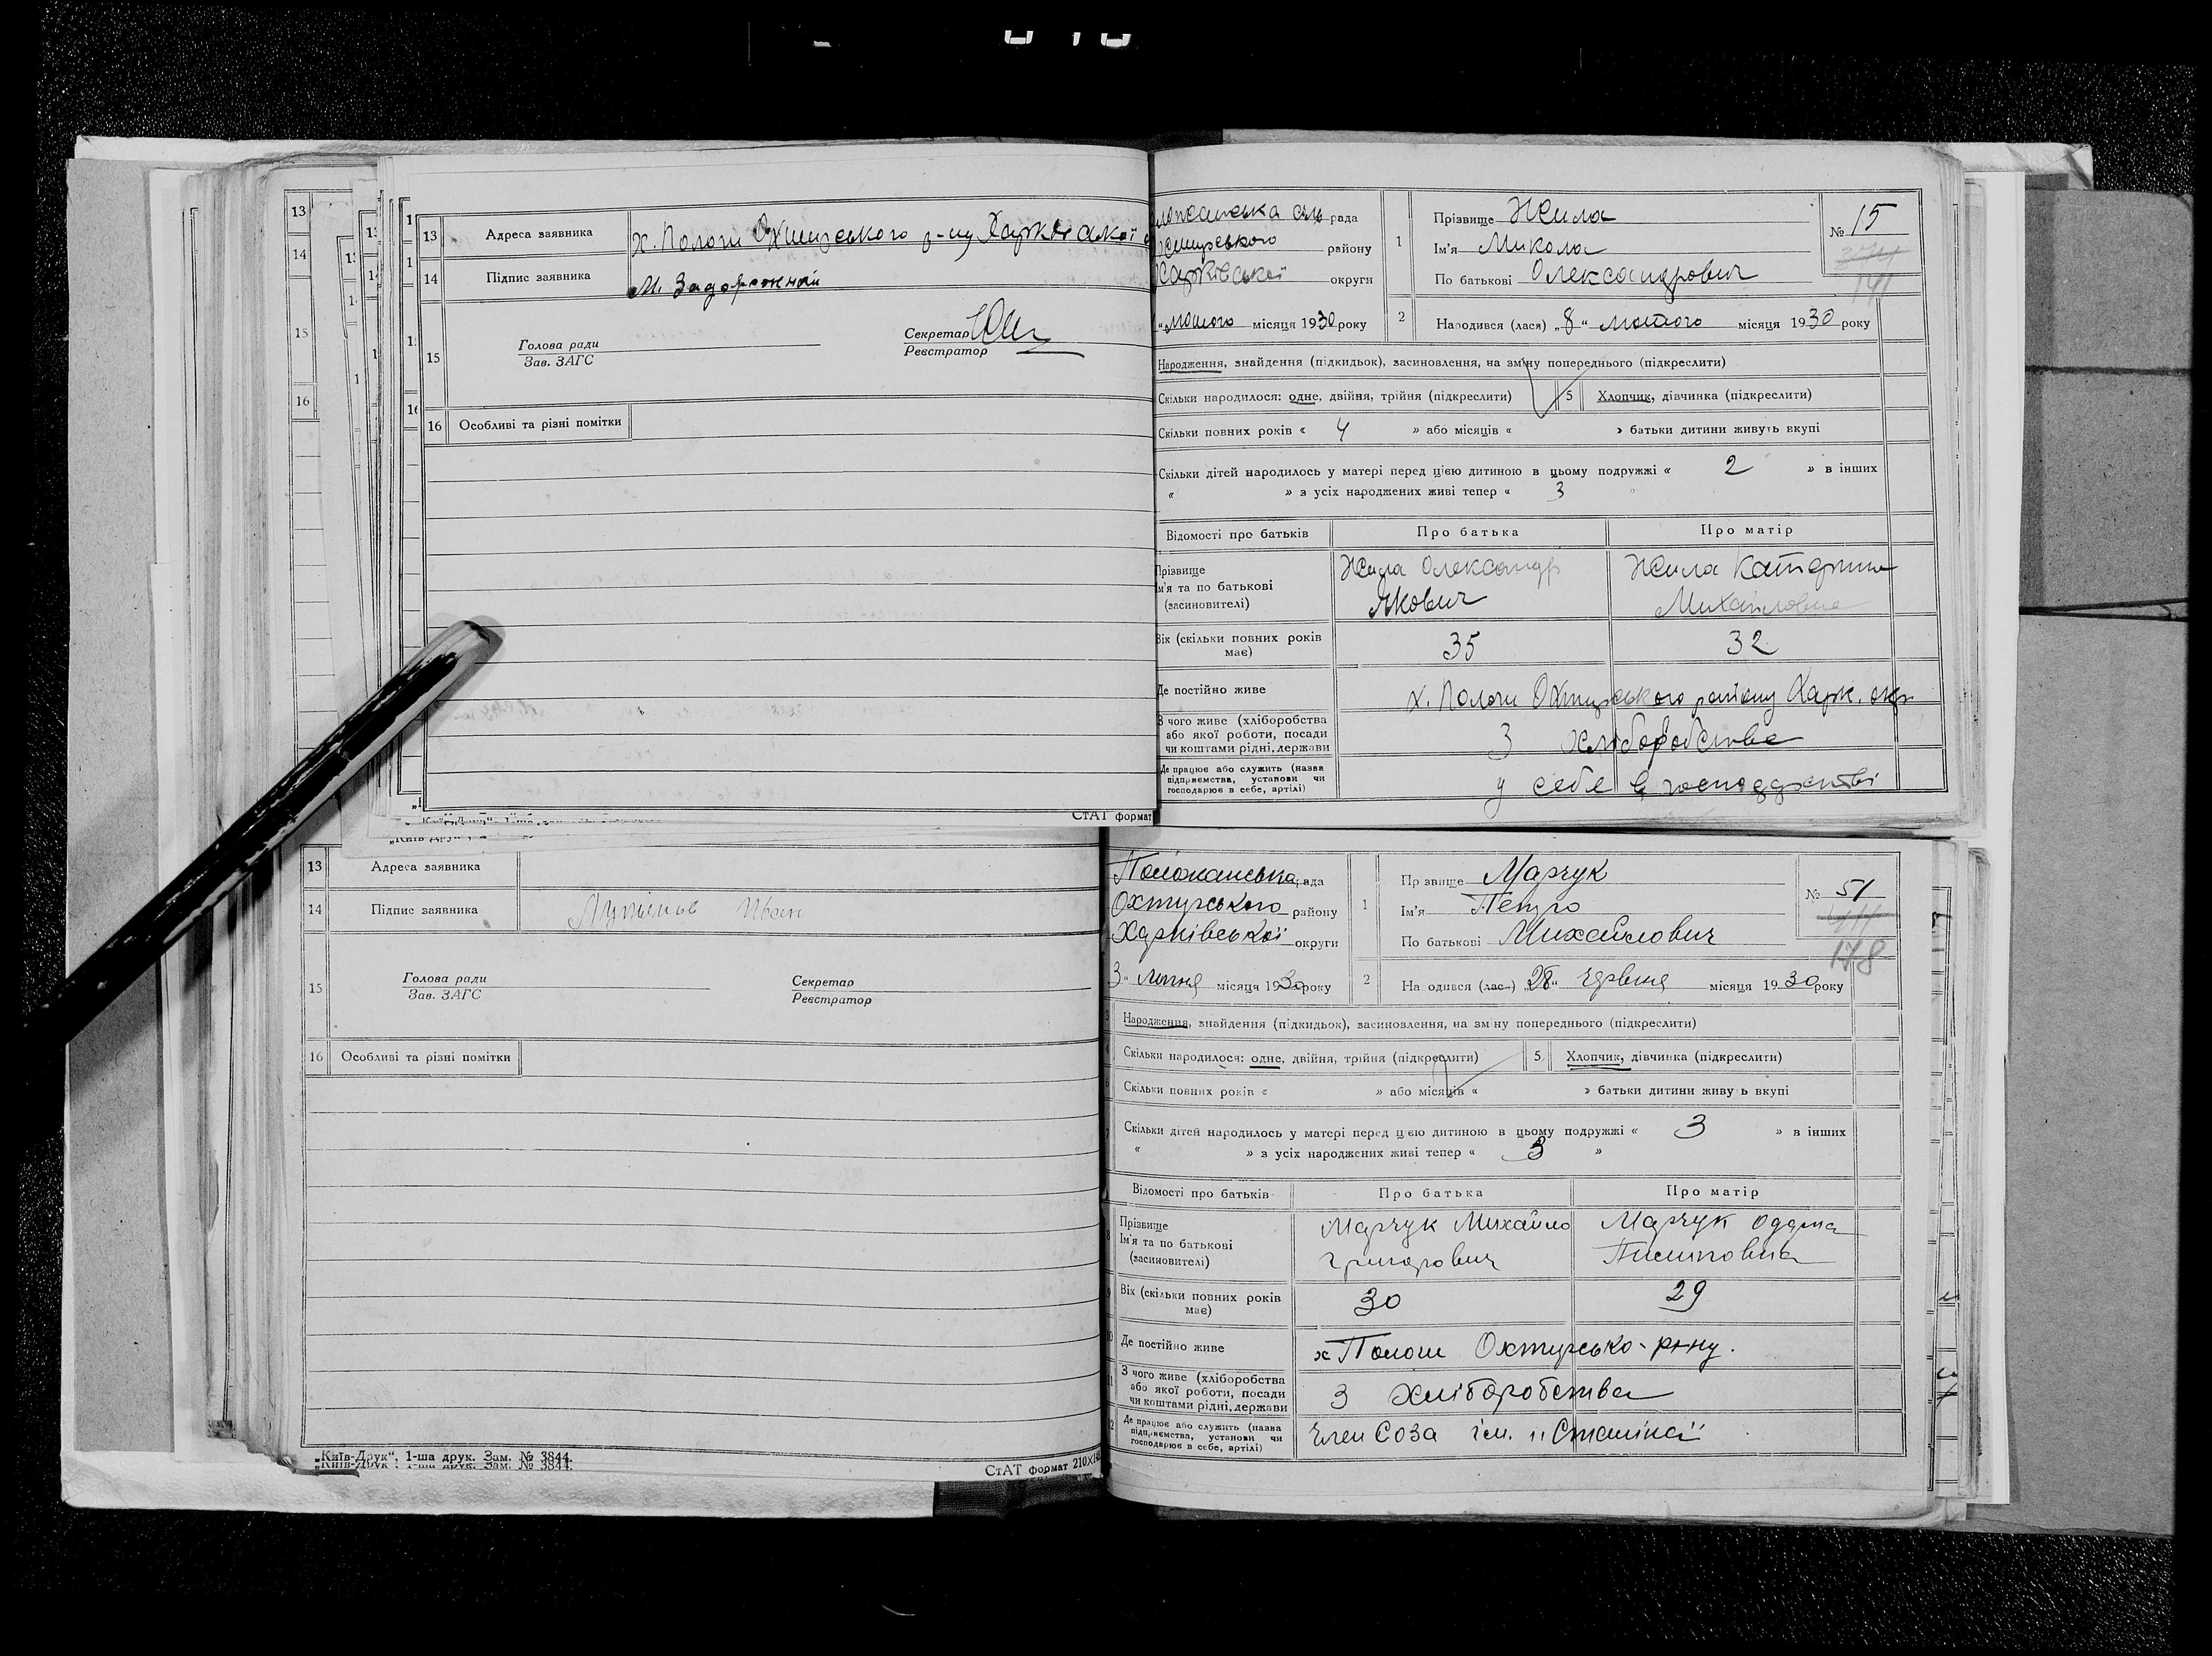 13 Адреса заявника х. Пологи Охтирського р-ну Харківської
14 Підпис заявника М. Задорожній
15 Голова ради
Зав. ЗАГС
Секретар
Реєстратор
16 Особливі та різні помітки
СтАТ формат
рада
району
Харківської округи
лютого місяця 1930 року
1 Прізвище Жила
Ім'я Микола
По батькові Олександрович
№ 15
141
2 Народився (лася) „8“ лютого місяця 1930 року
Народження, знайдення (підкидьок), засиновлення, на зміну попереднього (підкреслити)
Скільки народилося: одне, двійня, трійня (підкреслити) 5 Хлопчик, дівчинка (підкреслити)
Скільки повних років « 4 » або місяців « » батьки дитини живуть вкупі
Скільки дітей народилось у матері перед цією дитиною в цьому подружжі « 2 » в інших
« » з усіх народжених живі тепер « 3 »
Відомості про батьків Про батька Про матір
Прізвище
Ім'я та по батькові
(засиновителі)
Жила Олександр
Якович
Жила Катерина
Михайловна
Вік (скільки повних років
має)
35 32
Де постійно живе х. Пологи Охтирського району Харк. окр
З чого живе (хліборобства
або якої роботи, посади
чи коштами рідні, держави
З хліборобства
Де працює або служить (назва
підприємства, установи чи
господарює в себе, артілі)
у себе в господарстві
13 Адреса заявника
14 Підпис заявника Іван
15 Голова ради
Зав. ЗАГС
Секретар
Реєстратор
16 Особливі та різні помітки
„Київ-Друк“, 1-ша друк. Зам. № 3844.
СтАТ формат 210Х
Положанська рада
Охтирського району
Харківської округи
3“ липня місяця 1930 року
1 Прізвище Марчук
Ім'я Петро
По батькові Михайлович
№ 51
178
2 Народився (лась) „28“ червня місяця 1930 року
Народження, знайдення (підкидьок), засиновлення, на зміну попереднього (підкреслити)
Скільки народилося: одне, двійня, трійня (підкреслити) 5 Хлопчик, дівчинка (підкреслити)
Скільки повних років « » або місяців « » батьки дитини живуть вкупі
Скільки дітей народилось у матері перед цією дитиною в цьому подружжі « 3 » в інших
« » з усіх народжених живі тепер « 3 »
Відомості про батьків Про батька Про матір
Прізвище
Ім'я та по батькові
(засиновителі)
Марчук Михайло
Григорович
Марчук
Пилиповна
Вік (скільки повних років
має)
30 29
Де постійно живе х Пологи Охтирсько- р-ну.
З чого живе (хліборобства
або якої роботи, посади
чи коштами рідні, держави
З хліборобства
Де працює або служить (назва
підприємства, установи чи
господарює в себе, артілі)
Член Соза ім.